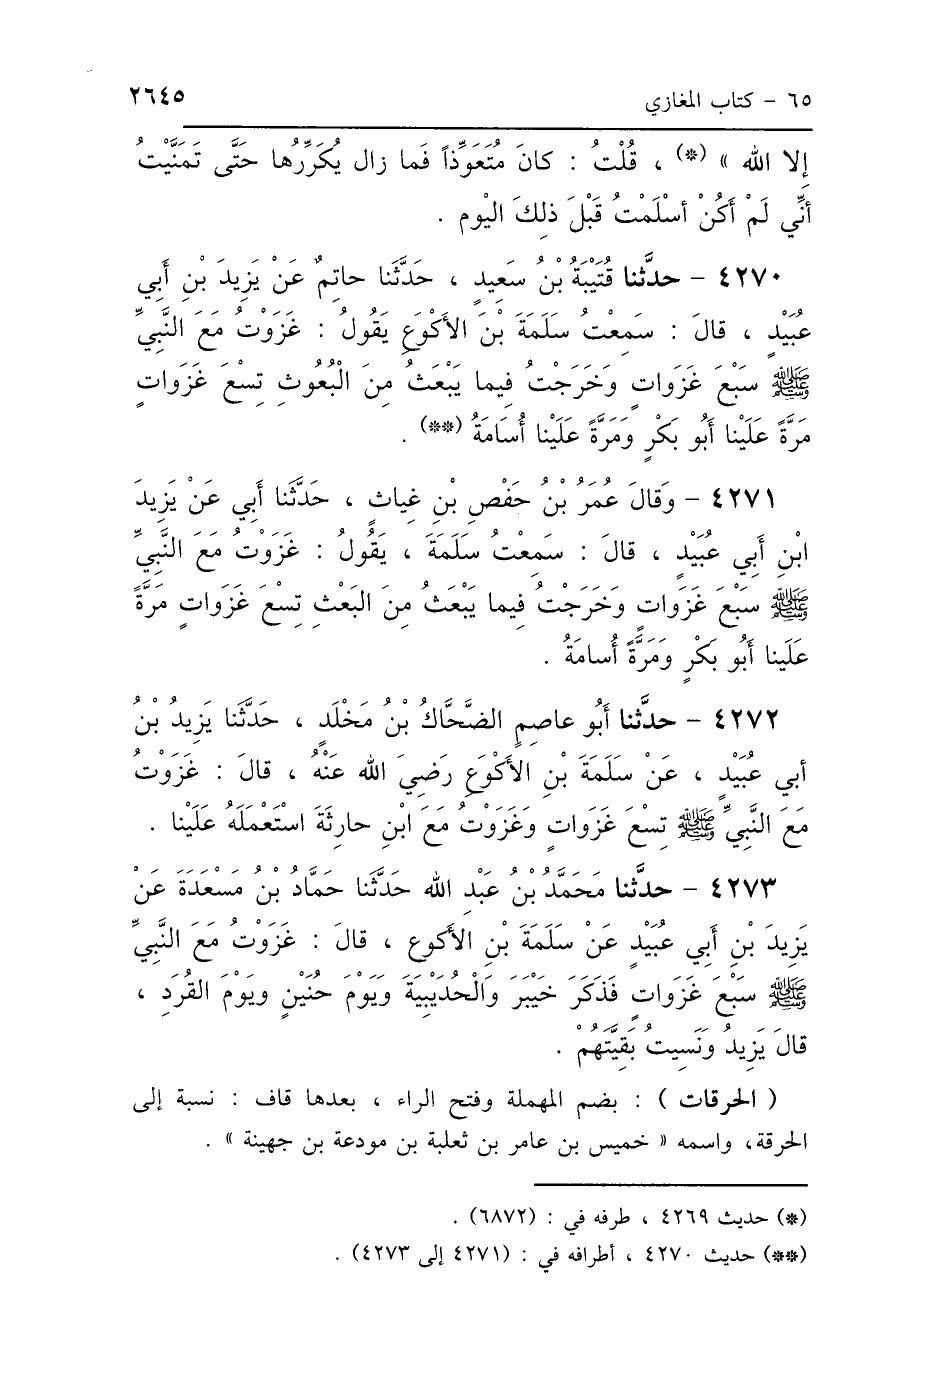 ٦٥ - كتاب المغازي ٢٦٤٥
إلا الله » (*) ، قُلْتُ : كانَ مُتَعَوِّذاً فَما زال يُكَرِّرُها حَتَّى تَمَنَّيْتُ
أَنِّي لَمْ أَكُنْ أسْلَمْتُ قَبْلَ ذلِكَ اليْومِ .
٤٢٧٠ - حدَّثنا قُتَيْبَةُ بْنُ سَعِيدٍ ، حَدَّثَنا حاتِمٌ عَنْ يَزِيدَ بْنِ أَبي
عُبَيْدٍ ، قالَ : سَمِعْتُ سَلَمَةَ بْنَ الأَكْوَعِ يَقُولُ : غَزَوْتُ مَعَ النَّبيِّ
ﷺ سَبْعَ غَزَواتٍ وَخَرَجْتُ فِيما يَبْعَثُ مِنَ الْبُعُوثِ تِسْعَ غَزَواتٍ
مَرَّةً عَلَيْنا أَبُو بَكْرٍ وَمَرَّةً عَلَيْنا أُسَامَةُ (**) .
٤٢٧١ - وَقالَ عُمَرُ بْنُ حَفْصِ بْنِ غِياثٍ ، حَدَّثَنا أَبي عَنْ يَزِيدَ
ابْنِ أَبي عُبَيْدٍ ، قالَ : سَمِعْتُ سَلَمَةَ ، يَقُولُ : غَزَوْتُ مَعَ النَّبيِّ
ﷺ سَبْعَ غَزَواتٍ وَخَرَجْتُ فِيما يَبْعَثُ مِنَ البَعْثِ تِسْعَ غَزَواتٍ مَرَّةً
عَلَينا أَبُو بَكْرٍ وَمَرَّةً أُسامَةُ .
٤٢٧٢ - حدَّثنا أَبُو عاصِمٍ الضَّحَّاكُ بْنُ مَخْلَدٍ ، حَدَّثَنا يَزِيدُ بْنُ
أَبي عُبَيْدٍ ، عَنْ سَلَمَةَ بْنِ الأَكْوَعِ رَضِيَ الله عَنْهُ ، قالَ : غَزَوْتُ
مَعَ النَّبِيِّ ﷺ تِسْعَ غَزَواتٍ وَغَزَوْتُ مَعَ ابْنِ حارِثَةَ اسْتَعْمَلَهُ عَلَيْنا .
٤٢٧٣ - حدَّثنا مُحَمَّدُ بْنُ عَبْدِ الله حَدَّثَنا حَمَّادُ بْنُ مَسْعَدَةَ عَنْ
يَزِيدَ بْنِ أَبي عُبَيْدٍ عَنْ سَلَمَةَ بْنِ الأكوعِ ، قالَ : غَزَوْتُ مَعَ النَّبيِّ
ﷺ سَبْعَ غَزَواتٍ فَذَكَرَ خَيْبَرَ وَالْحُدَيْبِيَةَ وَيَوْمَ حُنَيْنٍ وَيَوْمَ القَرَدِ ،
قالَ يَزِيدُ وَنَسِيتُ بَقِيَّتَهُمْ .
( الحرقات ) : بضم المهملة وفتح الراء ، بعدها قاف : نسبة إلى
الحرقة، واسمه « خميس بن عامر بن ثعلبة بن مودعة بن جهينة » .
(*) حديث ٤٢٦٩ ، طرفه في : (٦٨٧٢) .
(**) حديث ٤٢٧٠ ، أطرافه في : (٤٢٧١ إلى ٤٢٧٣) .